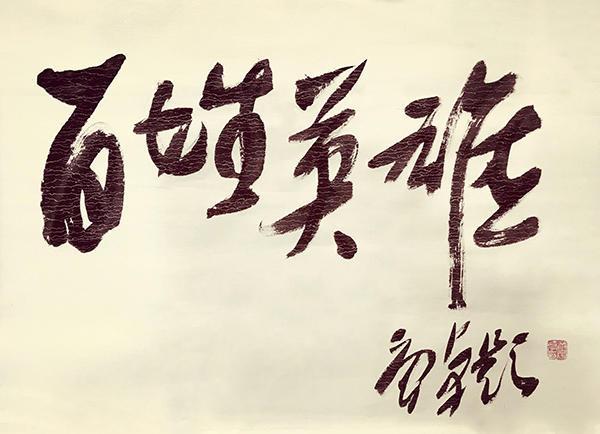 百姓英雄
题